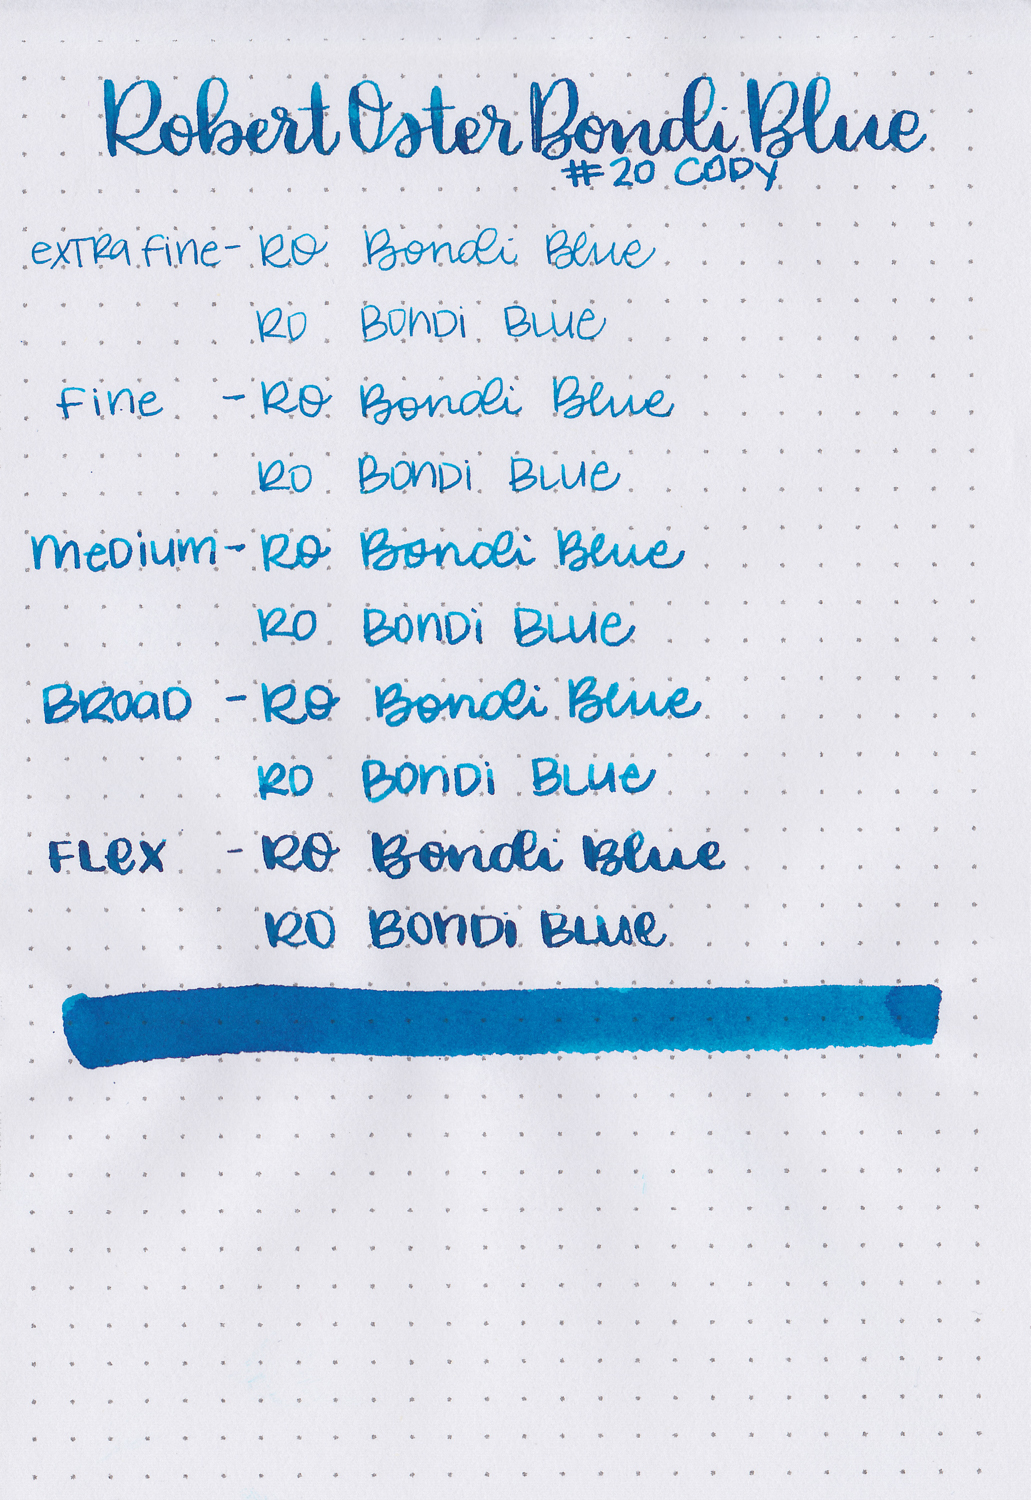 Robert Oster Bondi Blue
#20 CODY
extra fine - RO Bondi Blue
RO Bondi Blue
Fine - RO Bondi Blue
RO Bondi Blue
Medium - RO Bondi Blue
RO Bondi Blue
Broad - RO Bondi Blue
RO Bondi Blue
Flex - RO Bondi Blue
RO Bondi Blue